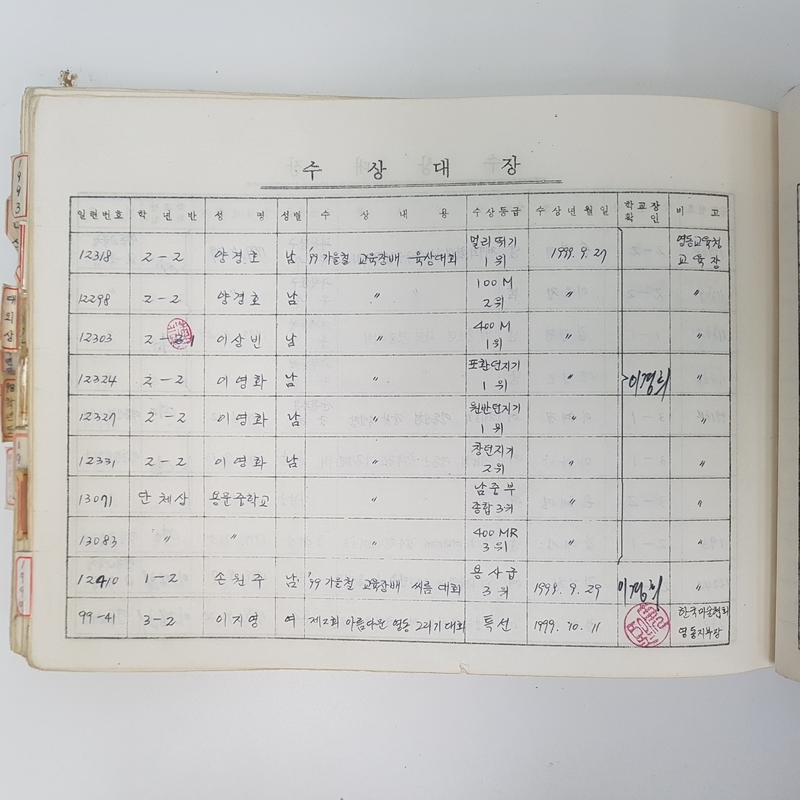 수 상 대 장
일련번호 학 년 반 성 명 성별 수 상 내 용 수상등급 수 상 년 월 일 학교장 확 인 비 고
12318 2-2 양경호 남 '99 가을철 교육장배 육상대회 멀리뛰기 1위 1999. 9. 27 영동교육청 교육장
12298 2-2 양경호 남 〃 100M 2위 〃 〃
12303 2- 이상빈 남 〃 400M 1위 〃 〃
12324 2-2 이영화 남 〃 포환던지기 1위 〃 이경희 〃
12327 2-2 이영화 남 〃 원반던지기 1위 〃 〃
12331 2-2 이영화 남 〃 창던지기 2위 〃 〃
13071 단체상 용문중학교 〃 남중부 종합 3위 〃 〃
13083 〃 〃 〃 400MR 3위 〃 〃
12410 1-2 손원주 남 '99 가을철 교육장배 씨름대회 용사급 3위 1999. 9. 29 이경희 〃
99-41 3-2 이지영 여 제2회 아름다운 영동 그리기대회 특선 1999. 10. 11 한국미술협회 영동지부장
1993
1999